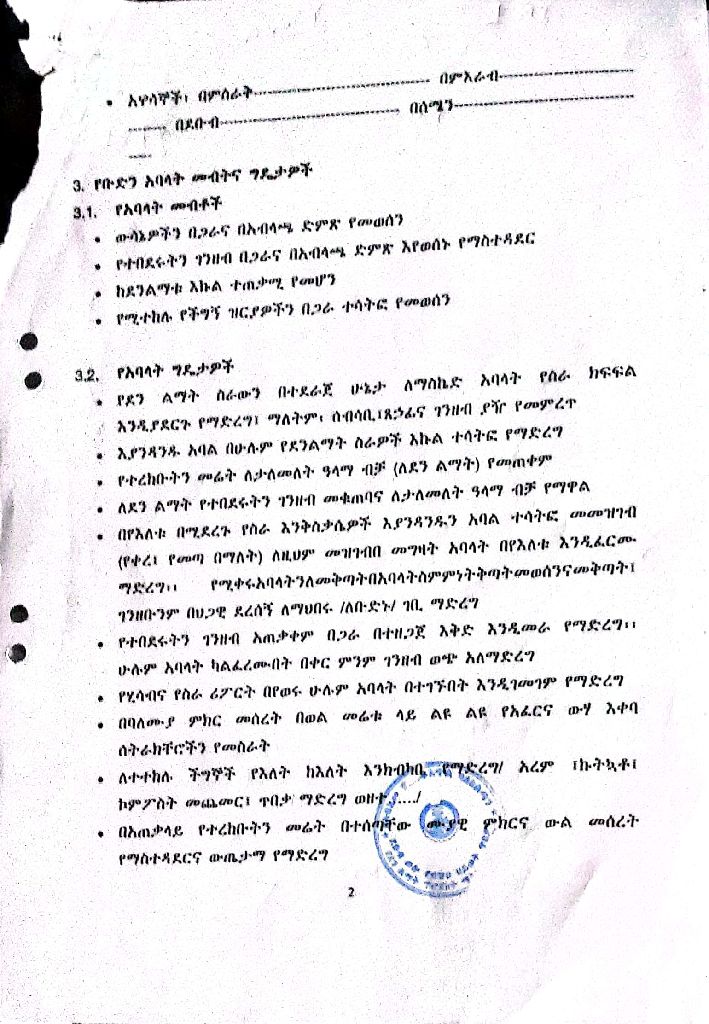 • አዋሳኞች፣ በምስራቅ-------------------------------- በምእራብ------------------------
------- በደቡብ-------------------------------- በሰሜን--------------------------------
----
3. የቡድን አባላት መብትና ግዴታዎች
3.1. የአባላት መብቶች
• ውሳኔዎችን በጋራና በአብላጫ ድምጽ የመወሰን
• የተበደሩትን ገንዘብ በጋራና በአብላጫ ድምጽ እየወሰኑ የማስተዳደር
• ከደንልማቱ እኩል ተጠቃሚ የመሆን
• የሚተከሉ የችግኝ ዝርያዎችን በጋራ ተሳትፎ የመወሰን
3.2. የአባላት ግዴታዎች
• የደን ልማት ስራውን በተደራጀ ሁኔታ ለማስኬድ አባላት የስራ ክፍፍል
እንዲያደርጉ የማድረግ፤ ማለትም፡ ሰብሳቢ፤ጸኃፊና ገንዘብ ያዥ የመምረጥ
• እያንዳንዱ አባል በሁሉም የደንልማት ስራዎች እኩል ተሳትፎ የማድረግ
• የተረከቡትን መሬት ለታለመለት ዓላማ ብቻ (ለደን ልማት) የመጠቀም
• ለደን ልማት የተበደሩትን ገንዘብ መቁጠባና ለታለመለት ዓላማ ብቻ የማዋል
• በየእለቱ በሚደረጉ የስራ እንቅስቃሴዎች እያንዳንዱን አባል ተሳትፎ መመዝገብ
(የቀረ፤ የመጣ በማለት) ለዚህም መዝገብበ መግዛት አባላት በየእለቱ እንዲፈርሙ
ማድረግ፡፡ የሚቀሩአባላትንለመቅጣትበአባላትስምምነትቅጣትመወሰንናመቅጣት፤
ገንዘቡንም በህጋዊ ደረሰኝ ለማህበሩ /ለቡድኑ/ ገቢ ማድረግ
• የተበደሩትን ገንዘብ አጠቃቀም በጋራ በተዘጋጀ እቅድ እንዲመራ የማድረግ፡፡
ሁሉም አባላት ካልፈረሙበት በቀር ምንም ገንዘብ ወጭ አለማድረግ
• የሂሳብና የስራ ሪፖርት በየወሩ ሁሉም አባላት በተገኙበት እንዲገመገም የማድረግ
• በባለሙያ ምክር መሰረት በወል መሬቱ ላይ ልዩ ልዩ የአፈርና ውሃ እቀባ
ስትራክቸሮችን የመስራት
• ለተተከሉ ችግኞች የእለት ከእለት እንክብካቤ የማድረግ/ አረም ፤ኩትኳቶ፤
ኮምፖስት መጨመር፤ ጥበቃ ማድረግ ወዘተ ..../
• በአጠቃላይ የተረከቡትን መሬት በተሰጣቸው ሙያዊ ምክርና ውል መሰረት
የማስተዳደርና ውጤታማ የማድረግ
2